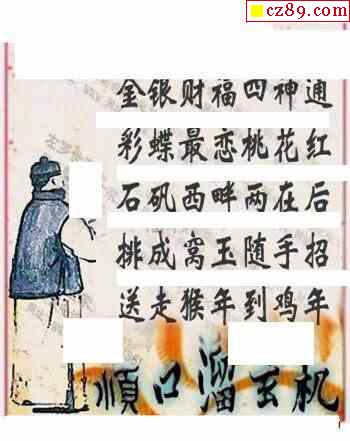 cz89.com
金银财福四神通
彩蝶最恋桃花红
石矶西畔两在后
排成窝玉随手招
送走猴年到鸡年
順口溜玄机